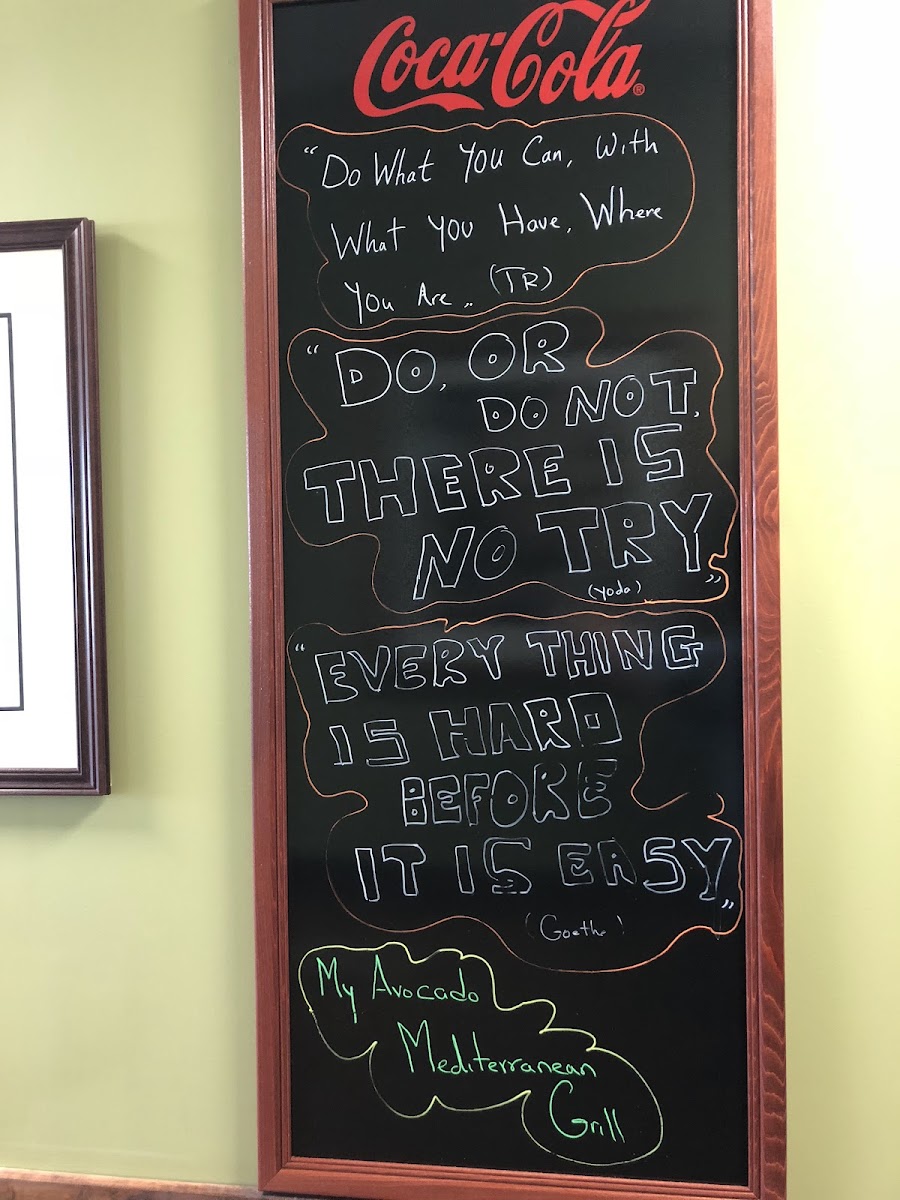 Coca-Cola®
"Do What You Can, With
What You Have, Where
You Are.. (TR)
"DO, OR
DO NOT,
THERE IS
NO TRY"
(Yoda)
"EVERY THING
IS HARD
BEFORE
IT IS EASY"
(Goethe)
My Avocado
Mediterranean
Grill